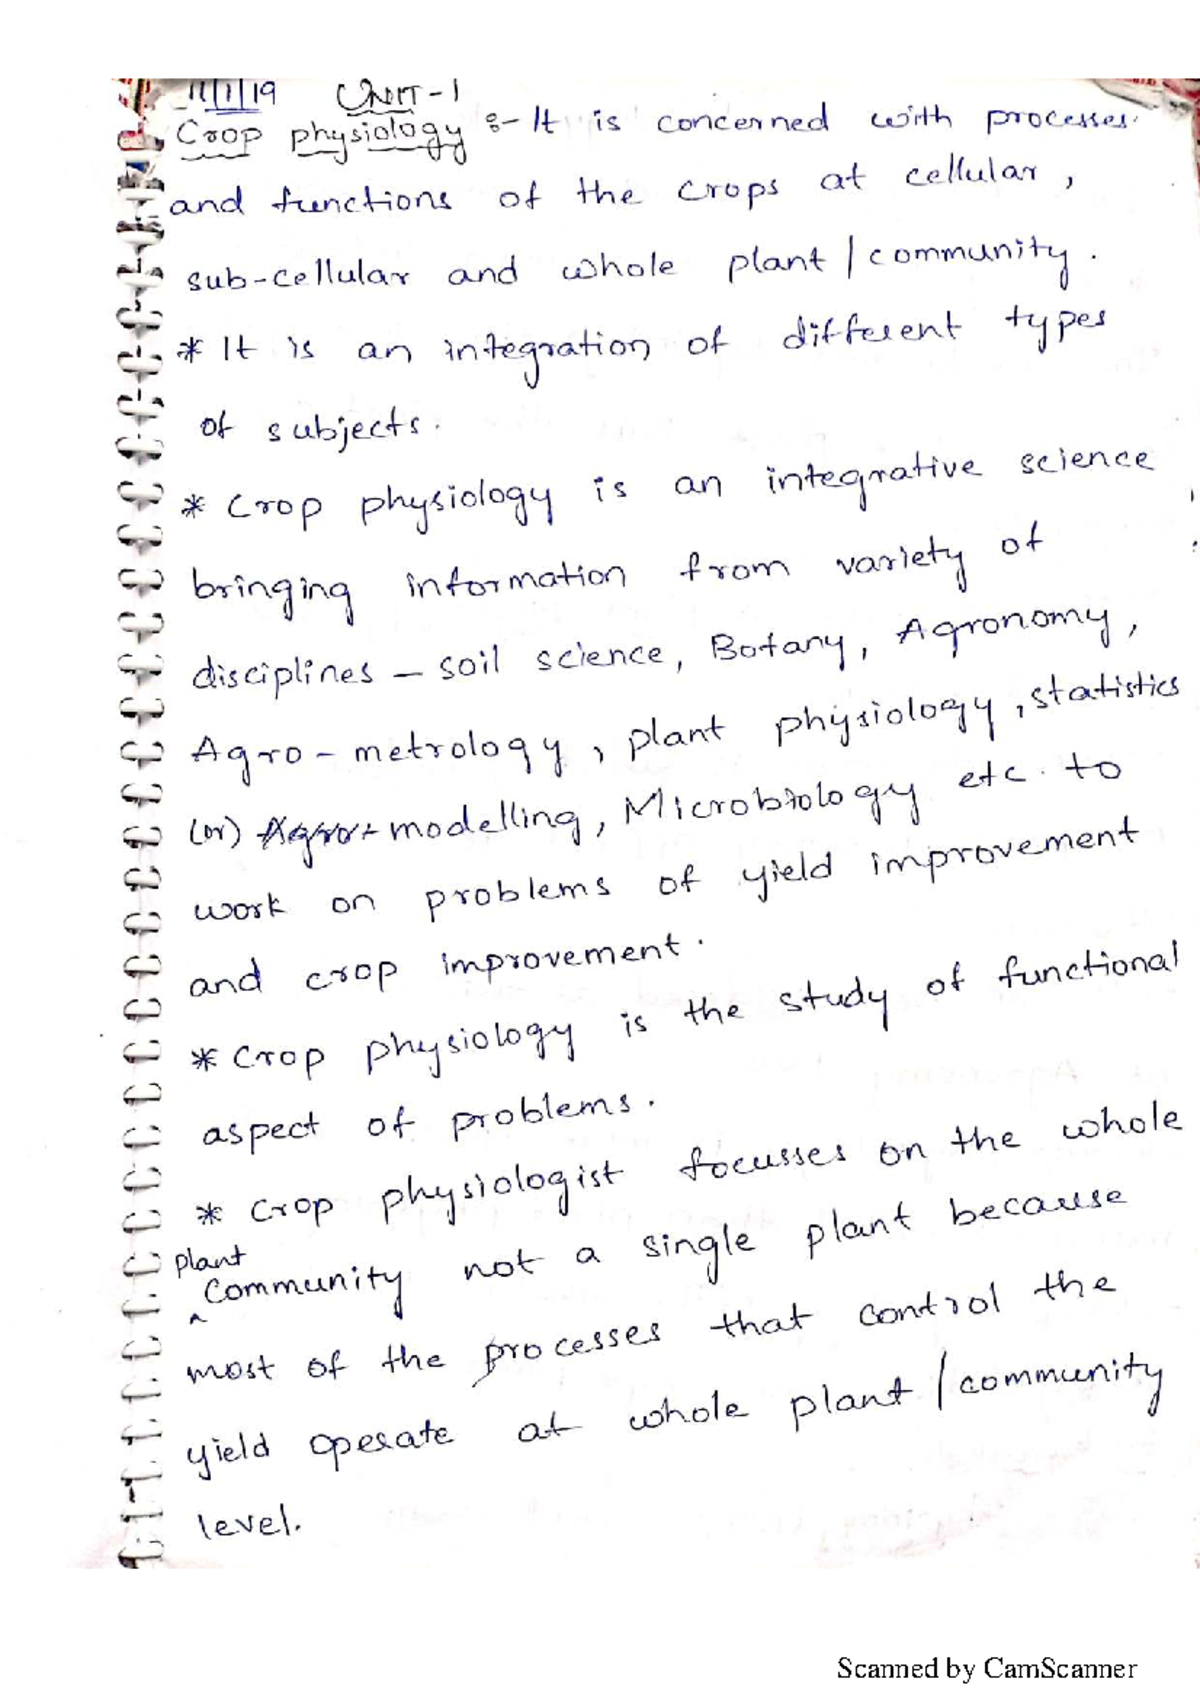 11/1/19 UNIT-1
Crop physiology :- It is concerned with processes
and functions of the crops at cellular,
sub-cellular and whole plant/community.
* It is an integration of different types
of subjects.
* Crop physiology is an integrative science
bringing information from variety of
disciplines – soil science, Botany, Agronomy,
Agro-metrology, plant physiology, statistics
(or) Agro- modelling, Microbiology etc. to
work on problems of yield improvement
and crop improvement.
* Crop physiology is the study of functional
aspect of problems.
* Crop physiologist focusses on the whole
plant
community not a single plant because
most of the processes that control the
yield operate at whole plant/community
level.
Scanned by CamScanner